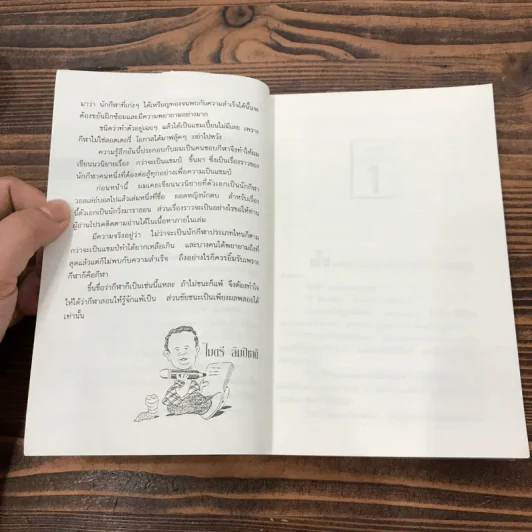 มาว่า นักกีฬาที่เก่งๆ ได้เหรียญทองจนพบกับความสำเร็จได้นั้นจะ
ต้องขยันฝึกซ้อมและมีความพยายามอย่างมาก
ชนิดว่าทำตัวอยู่เฉยๆ แล้วได้เป็นแชมเปี้ยนไม่มีเลย เพราะ
กีฬาไม่ใช่ลอตเตอรี่ โอกาสได้มาฟลุ้คๆ อย่าไปหวัง
ความรู้สึกอันนี้ประกอบกับผมเป็นคนชอบกีฬาจึงทำให้ผม
เขียนนวนิยายเรื่อง กว่าจะเป็นแชมป์ ขึ้นมา ซึ่งเป็นเรื่องราวของ
นักกีฬาคนหนึ่งที่ต้องต่อสู้ทุกอย่างเพื่อความเป็นแชมป์
ก่อนหน้านี้ ผมเคยเขียนนวนิยายที่ตัวเอกเป็นนักกีฬา
วอลเลย์บอลไปแล้วเล่มหนึ่งที่ชื่อ ยอดหญิงนักตบ สำหรับเรื่อง
นี้ตัวเอกเป็นนักวิ่งมาราธอน ส่วนเรื่องราวจะเป็นอย่างไรขอให้ท่าน
ผู้อ่านโปรดติดตามอ่านได้ในเนื้อหาภายในเล่ม
มีความจริงอยู่ว่า ไม่ว่าจะเป็นนักกีฬาประเภทไหนก็ตาม
กว่าจะเป็นแชมป์ทำได้ยากเหลือเกิน และบางคนได้พยายามถึงที่
สุดแล้วแต่ก็ไม่พบกับความสำเร็จ ถึงอย่างไรก็ควรยิ้มรับเพราะ
กีฬาก็คือกีฬา
ขึ้นชื่อว่ากีฬาก็เป็นเช่นนี้แหละ ถ้าไม่ชนะก็แพ้ จึงต้องทำใจ
ให้ได้ว่ากีฬาสอนให้รู้จักแพ้เป็น ส่วนชัยชนะเป็นเพียงผลพลอยได้
เท่านั้น
ไมตรี ลิมปิชาติ
1